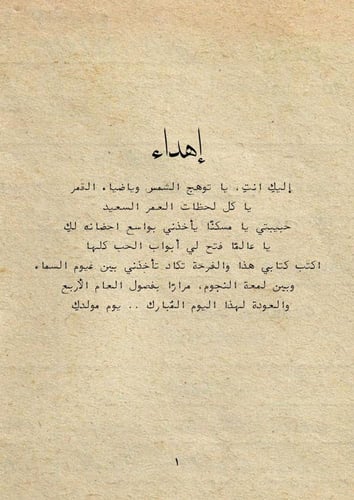 إهداء
إليكِ انتِ، يا توهج الشمس وياضياء القمر
يا كل لحظات العمر السعيد
حبيبتي يا مسكنًا يأخذني بواسع احضانه لكِ
يا عالمًا فتح لي أبواب الحب كلها
اكتب كتابي هذا والفرحة تكاد تأخذني بين غيوم السماء
وبين لمعة النجوم، مرارًا بفصول العام الأربع
والعودة لهذا اليوم المُبارك .. يوم مولدكِ
١